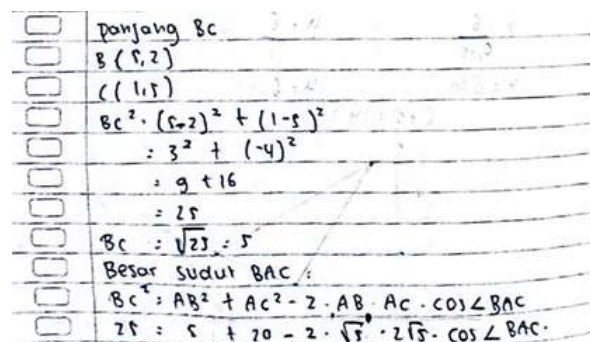 Panjang BC
B (5,2)
C (1,5)
BC² = (5-2)² + (1-5)²
= 3² + (-4)²
= 9 + 16
= 25
BC = √25 = 5
Besar sudut BAC :
BC² = AB² + AC² - 2 . AB . AC . cos ∠ BAC
25 = 5 + 20 - 2 . √5 . 2√5 . cos ∠ BAC .